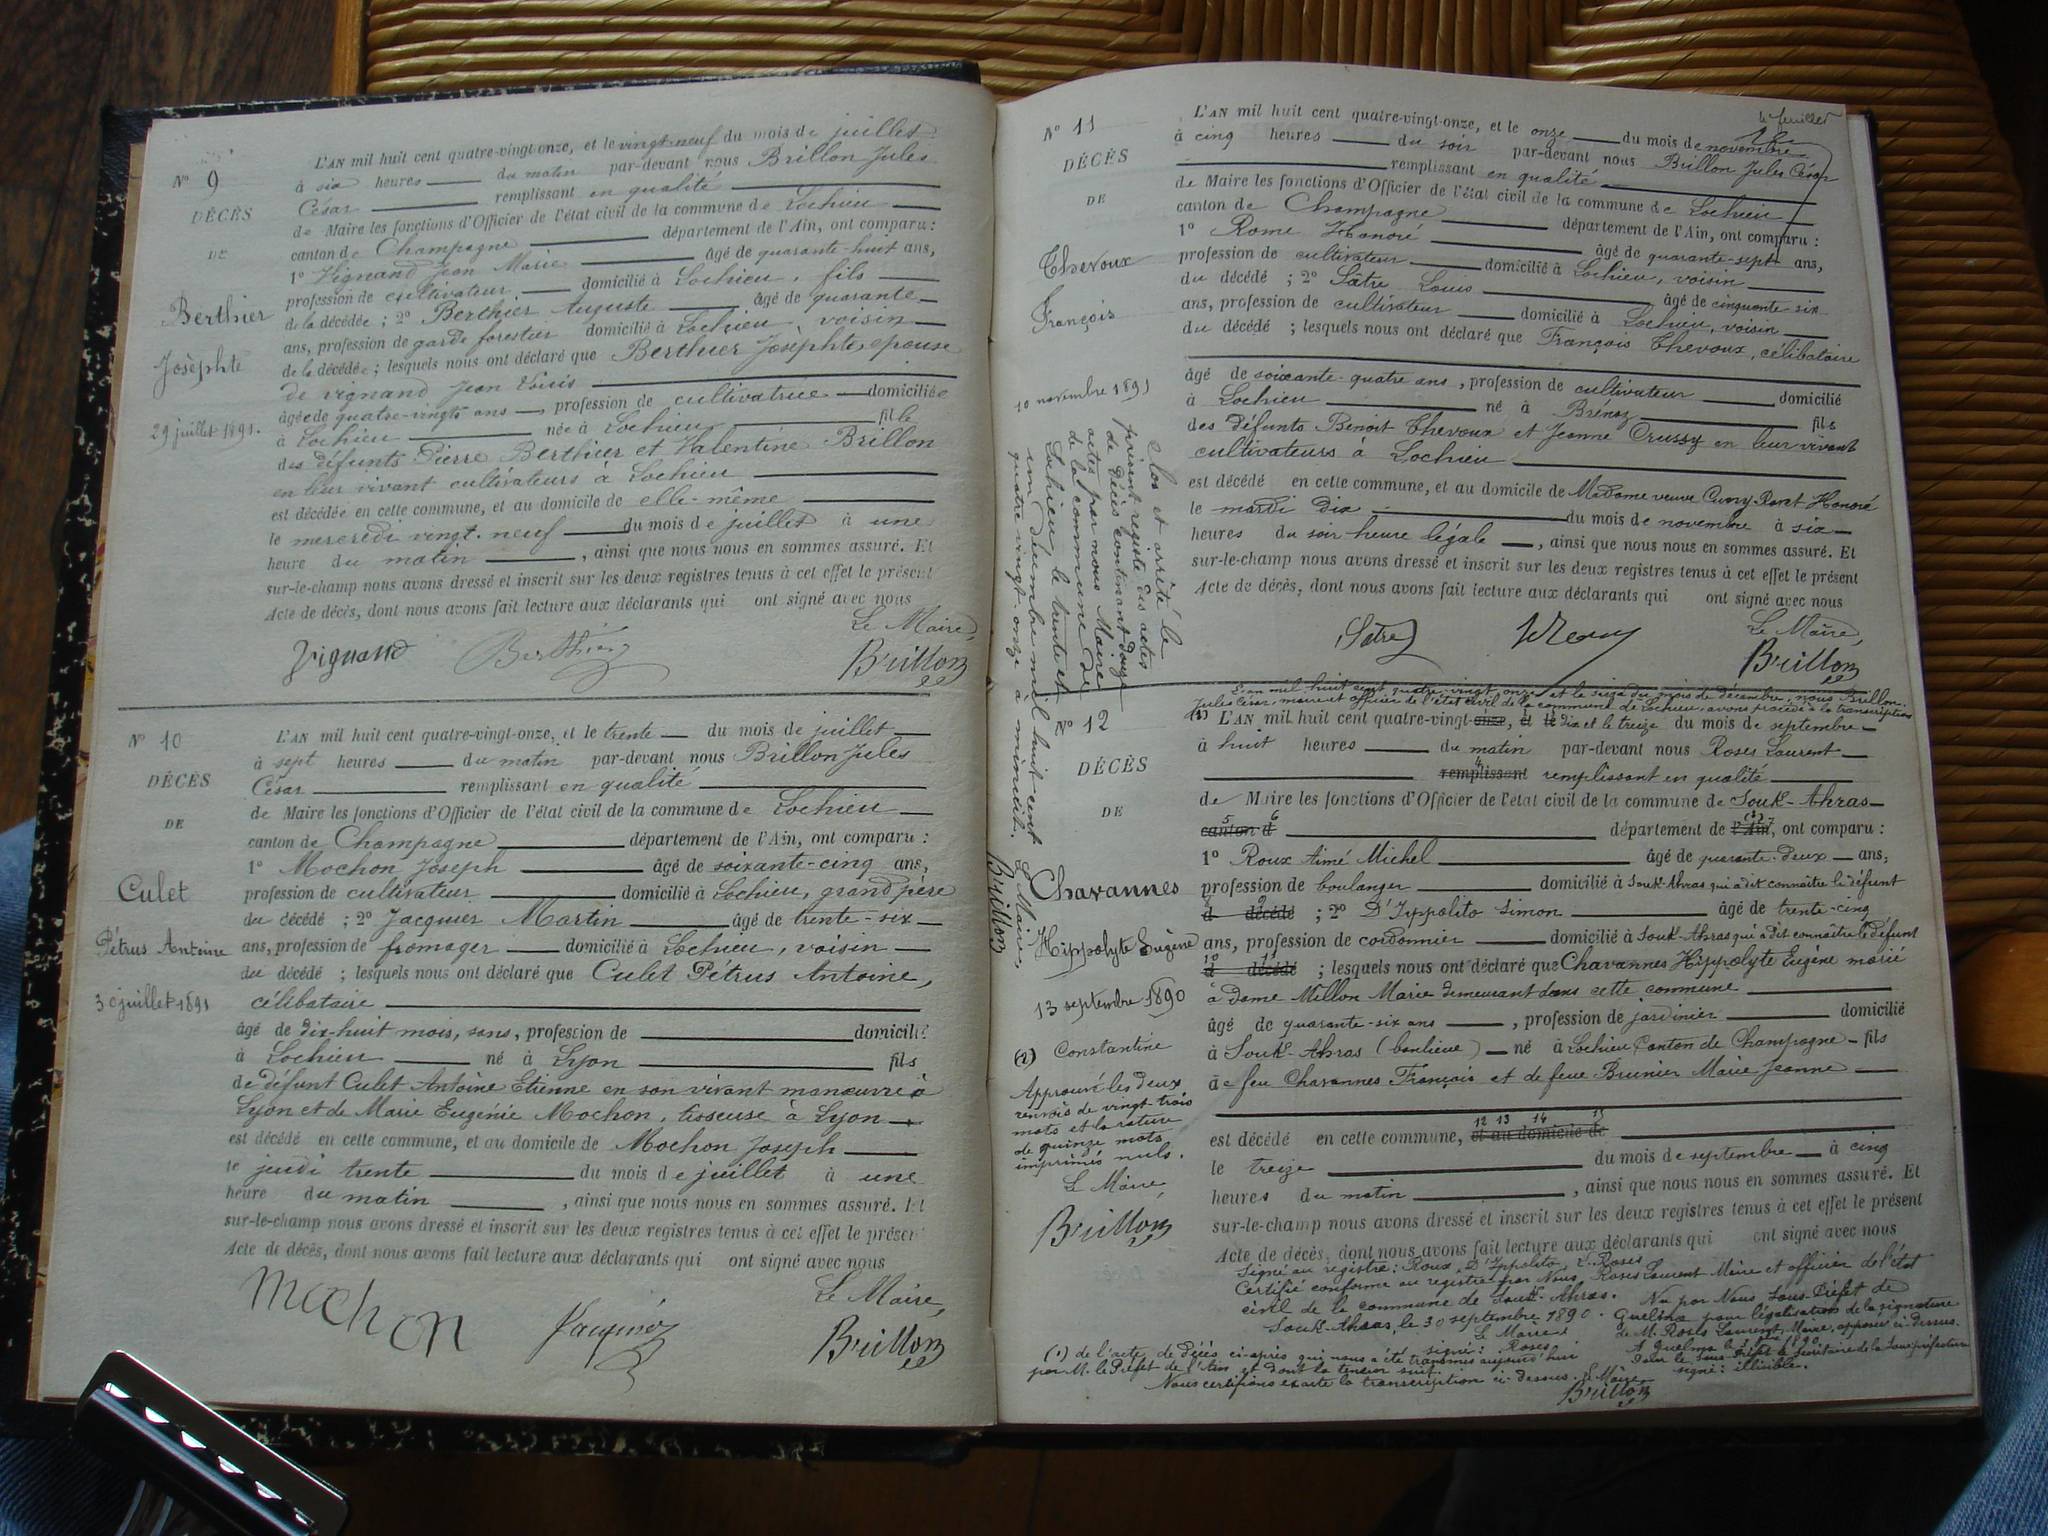 N° 9
DÉCÈS
DE
Berthier
Josèphte
29 juillet 1891.
L'AN mil huit cent quatre-vingt-onze, et le vingt-neuf du mois de juillet
à six heures du matin par-devant nous Brillon Jules
César remplissant en qualité
de Maire les fonctions d'Officier de l'état civil de la commune de Lochieu
canton de Champagne département de l'Ain, ont comparu :
1° Vignand Jean Marie âgé de quarante-huit ans,
profession de cultivateur domicilié à Lochieu, fils
de la décédée ; 2° Berthier Auguste âgé de quarante
ans, profession de garde forestier domicilié à Lochieu, voisin
de la décédée ; lesquels nous ont déclaré que Berthier Josèphte, épouse
de vignand Jean Louis
âgée de quatre-vingts ans, profession de cultivatrice domiciliée
à Lochieu née à Lochieu fille
des défunts Pierre Berthier et Valentine Brillon
en leur vivant cultivateurs à Lochieu
est décédée en cette commune, et au domicile de elle-même
le mercredi vingt-neuf du mois de juillet à une
heure du matin, ainsi que nous nous en sommes assuré. Et
sur-le-champ nous avons dressé et inscrit sur les deux registres tenus à cet effet le présent
Acte de décès, dont nous avons fait lecture aux déclarants qui ont signé avec nous
Le Maire,
Vignand Berthier Brillon
N° 10
DÉCÈS
DE
Culet
Pétrus Antoine
30 juillet 1891
L'AN mil huit cent quatre-vingt-onze, et le trente du mois de juillet
à sept heures du matin par-devant nous Brillon Jules
César remplissant en qualité
de Maire les fonctions d'Officier de l'état civil de la commune de Lochieu
canton de Champagne département de l'Ain, ont comparu :
1° Mochon Joseph âgé de soixante-cinq ans,
profession de cultivateur domicilié à Lochieu, grand père
du décédé ; 2° Jacquier Martin âgé de trente-six
ans, profession de fromager domicilié à Lochieu, voisin
du décédé ; lesquels nous ont déclaré que Culet Pétrus Antoine,
célibataire
âgé de dix-huit mois, sans, profession de domicilié
à Lochieu né à Lyon fils
de défunt Culet Antoine Etienne en son vivant manœuvre à
Lyon et de Marie Eugénie Mochon, tisseuse à Lyon
est décédé en cette commune, et au domicile de Mochon Joseph
le jeudi trente du mois de juillet à une
heure du matin, ainsi que nous nous en sommes assuré. Et
sur-le-champ nous avons dressé et inscrit sur les deux registres tenus à cet effet le présent
Acte de décès, dont nous avons fait lecture aux déclarants qui ont signé avec nous
Le Maire,
Mochon Jacquier Brillon
4e feuillet
N° 11
DÉCÈS
DE
Thevoux
François
10 novembre 1891
L'AN mil huit cent quatre-vingt-onze, et le onze du mois de novembre
à cinq heures du soir par-devant nous Brillon Jules César
remplissant en qualité
de Maire les fonctions d'Officier de l'état civil de la commune de Lochieu
canton de Champagne département de l'Ain, ont comparu :
1° Rome Honoré âgé de quarante-sept ans,
profession de cultivateur domicilié à Lochieu, voisin
du décédé ; 2° Sâtre Louis âgé de cinquante six
ans, profession de cultivateur domicilié à Lochieu, voisin
du décédé ; lesquels nous ont déclaré que François Thevoux, célibataire
âgé de soixante-quatre ans, profession de cultivateur domicilié
à Lochieu né à Brénaz fils
des défunts Benoit Thevoux et Jeanne Crussy en leur vivant
cultivateurs à Lochieu
est décédé en cette commune, et au domicile de Madame veuve Honoré
le mardi dix du mois de novembre à six
heures du soir heure légale, ainsi que nous nous en sommes assuré. Et
sur-le-champ nous avons dressé et inscrit sur les deux registres tenus à cet effet le présent
Acte de décès, dont nous avons fait lecture aux déclarants qui ont signé avec nous
Le Maire,
Sâtre Brillon
Clos et arrêté le
présent registre des actes
de décès contenant douze
actes par nous Maire
de la commune de
Lochieu le trente et
un décembre mil huit cent
quatre vingt onze à minuit.
Le Maire,
Brillon
N° 12
DÉCÈS
DE
Chavannes
Hippolyte Eugène
13 septembre 1890
(2) Constantine
Approuvé les deux
renvois de vingt-trois
mots et la rature
de quinze mots
imprimés nuls.
Le Maire,
Brillon
L'an mil huit cent quatre-vingt onze et le seize du mois de décembre, nous Brillon
Jules César, maire et officier de l'état civil de la commune de Lochieu, avons procédé à la transcription
(1) L'AN mil huit cent quatre-vingt-onze, et le dix et le treize du mois de septembre
à huit heures du matin par-devant nous Roses Laurent
remplissant remplissant en qualité
de Maire les fonctions d'Officier de l'état civil de la commune de Souk-Ahras
canton d département de l'Ain, (2) ont comparu :
1° Roux Aimé Michel âgé de quarante-deux ans,
profession de boulanger domicilié à Souk-Ahras qui a dit connaître le défunt
d décédé ; 2° D'Ippolito Simon âgé de trente-cinq
ans, profession de cordonnier domicilié à Souk-Ahras qui a dit connaître le défunt
d décédé ; lesquels nous ont déclaré que Chavannes Hippolyte Eugène marié
à dame Millon Marie demeurant dans cette commune
âgé de quarante-six ans, profession de jardinier domicilié
à Souk-Ahras (banlieue) né à Lochieu Canton de Champagne fils
de feu Chavannes François et de feue Brunier Marie Jeanne
est décédé en cette commune, et au domicile de
le treize du mois de septembre à cinq
heures du matin, ainsi que nous nous en sommes assuré. Et
sur-le-champ nous avons dressé et inscrit sur les deux registres tenus à cet effet le présent
Acte de décès, dont nous avons fait lecture aux déclarants qui ont signé avec nous
Signé au registre : Roux, D'Ippolito, L. Roses
Certifié conforme au registre par Nous, Roses Laurent Maire et officier de l'état
civil de la commune de Souk-Ahras.
Souk-Ahras, le 30 septembre 1890.
Le Maire,
signé : Roses
Vu par Nous Sous-Préfet de
Guelma pour légalisation de la signature
de M. Roses Laurent, Maire, apposée ci-dessus.
A Guelma le 1890
Pour le Sous-Préfet le Secrétaire de la Sous-préfecture
signé : illisible.
(1) de l'acte de Décès ci-après qui nous a été transmis aujourd'hui
par M. le Préfet de l'Ain et dont la teneur suit.
Nous certifions exacte la transcription ci-dessus. Le Maire
Brillon